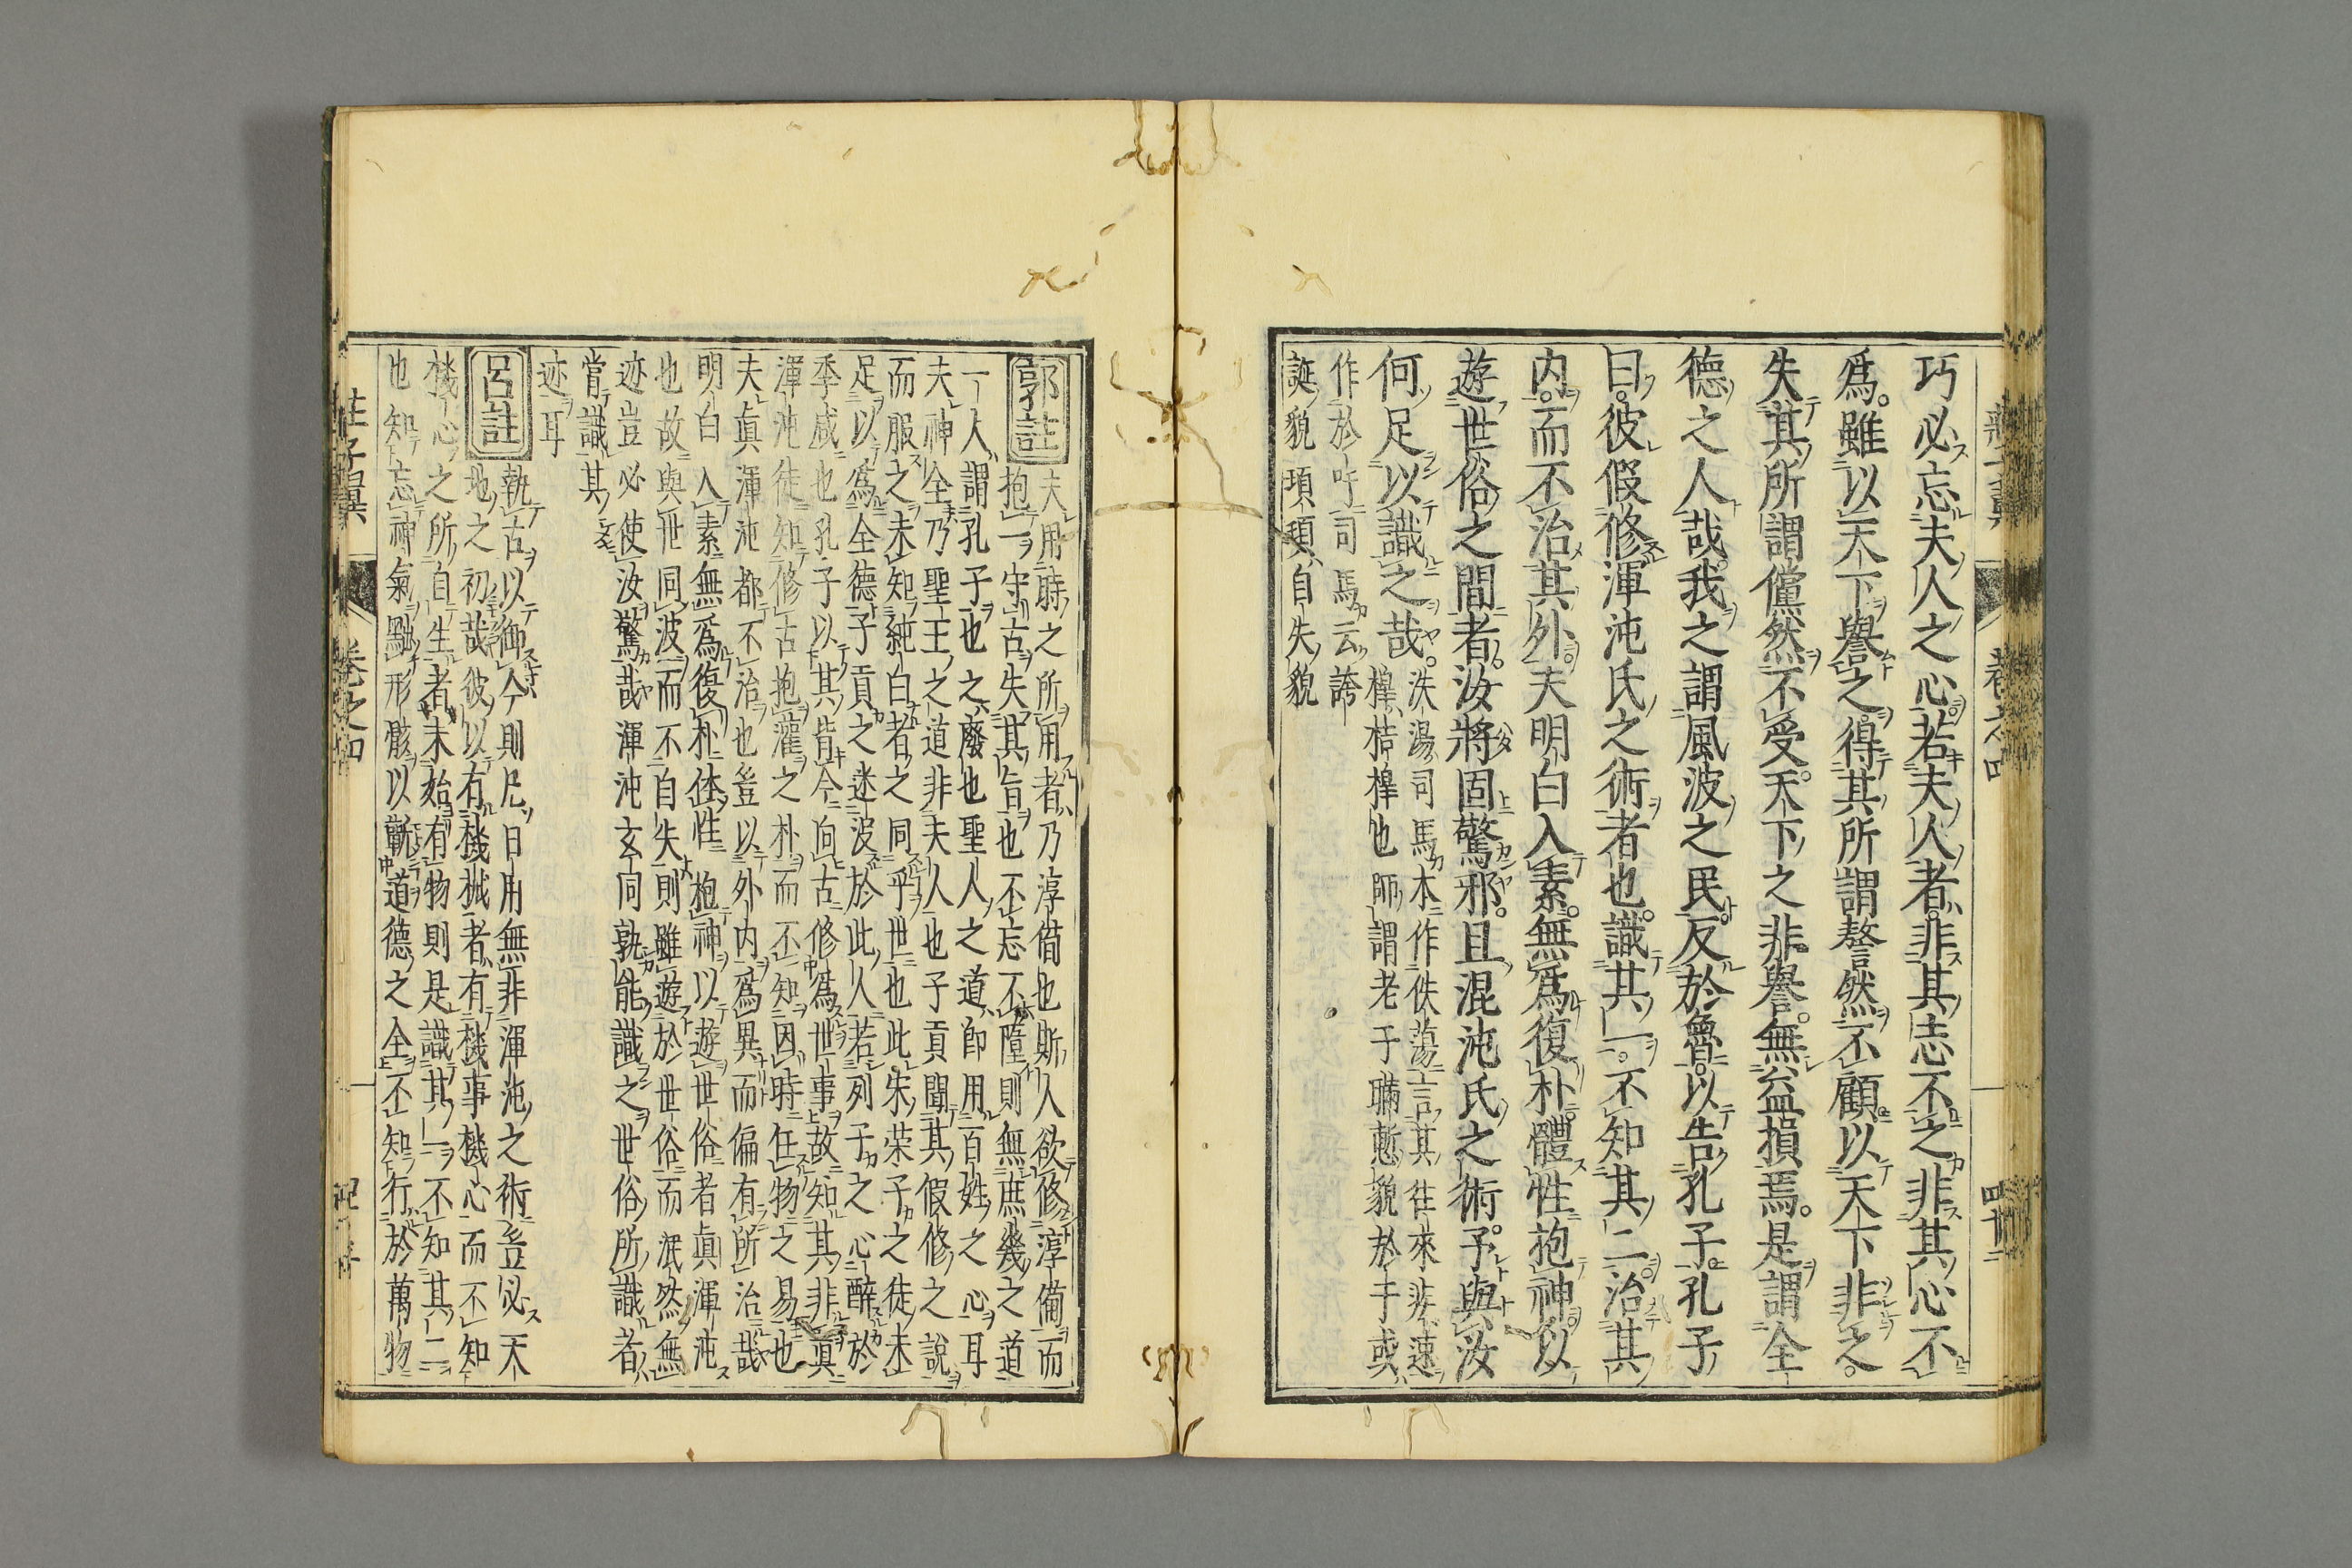 巧必忘夫人之心若夫人者非其志不之非其心不
爲雖以天下譽之得其所謂謷然不顧以天下非之
失其所謂儻然不受天下之非譽無益損焉是謂全
德之人哉我之謂風波之民反於魯以告孔子孔子
曰彼假修渾沌氏之術者也識其一不知其二治其
内而不治其外夫明白入素無爲復朴體性抱神以
遊世俗之間者汝將固驚邪且混沌氏之術予與汝
何足以識之哉
泆湯司馬本作佚蕩言其往來非速
橰桔橰也師謂老子聃慙貌於于或
作於吁司馬云誇
誕貌項項自失貌
莊子翼
卷之四
郭註
夫用時之所用者乃淳備也斯人欲修淳備而
抱一守古失其旨也不忘不墮則無庶幾之道
一人謂孔子也之廢也聖人之道即用百姓之心耳
夫神全乃聖王之道非夫人也子貢聞其假修之說
而服之未知純白者之同乎世也此宋榮子之徒未
足以爲全德子貢之迷波於此人若列子之心醉於
季咸也孔子以其背今向古修爲世事故知其非眞
渾沌徒知修古抱灌之朴而不知因時任物之易也
夫眞渾沌都不治也豈以外内爲異而偏有所治哉
明白入素無爲復朴体性抱神以遊世俗者眞渾沌
也故與世同波而不自失則雖遊於世俗而泯然無
迹豈必使汝驚哉渾沌玄同孰能識之世俗所識者
當識其
迹耳
呂註
執古以御今則凡日用無非渾沌之術豈必天
地之初哉彼以有機械者有機事機心而不知
機心之所自生者未始有物則是識其一不知其二
也知忘神氣黜形骸以蘄道德之全不知行於萬物